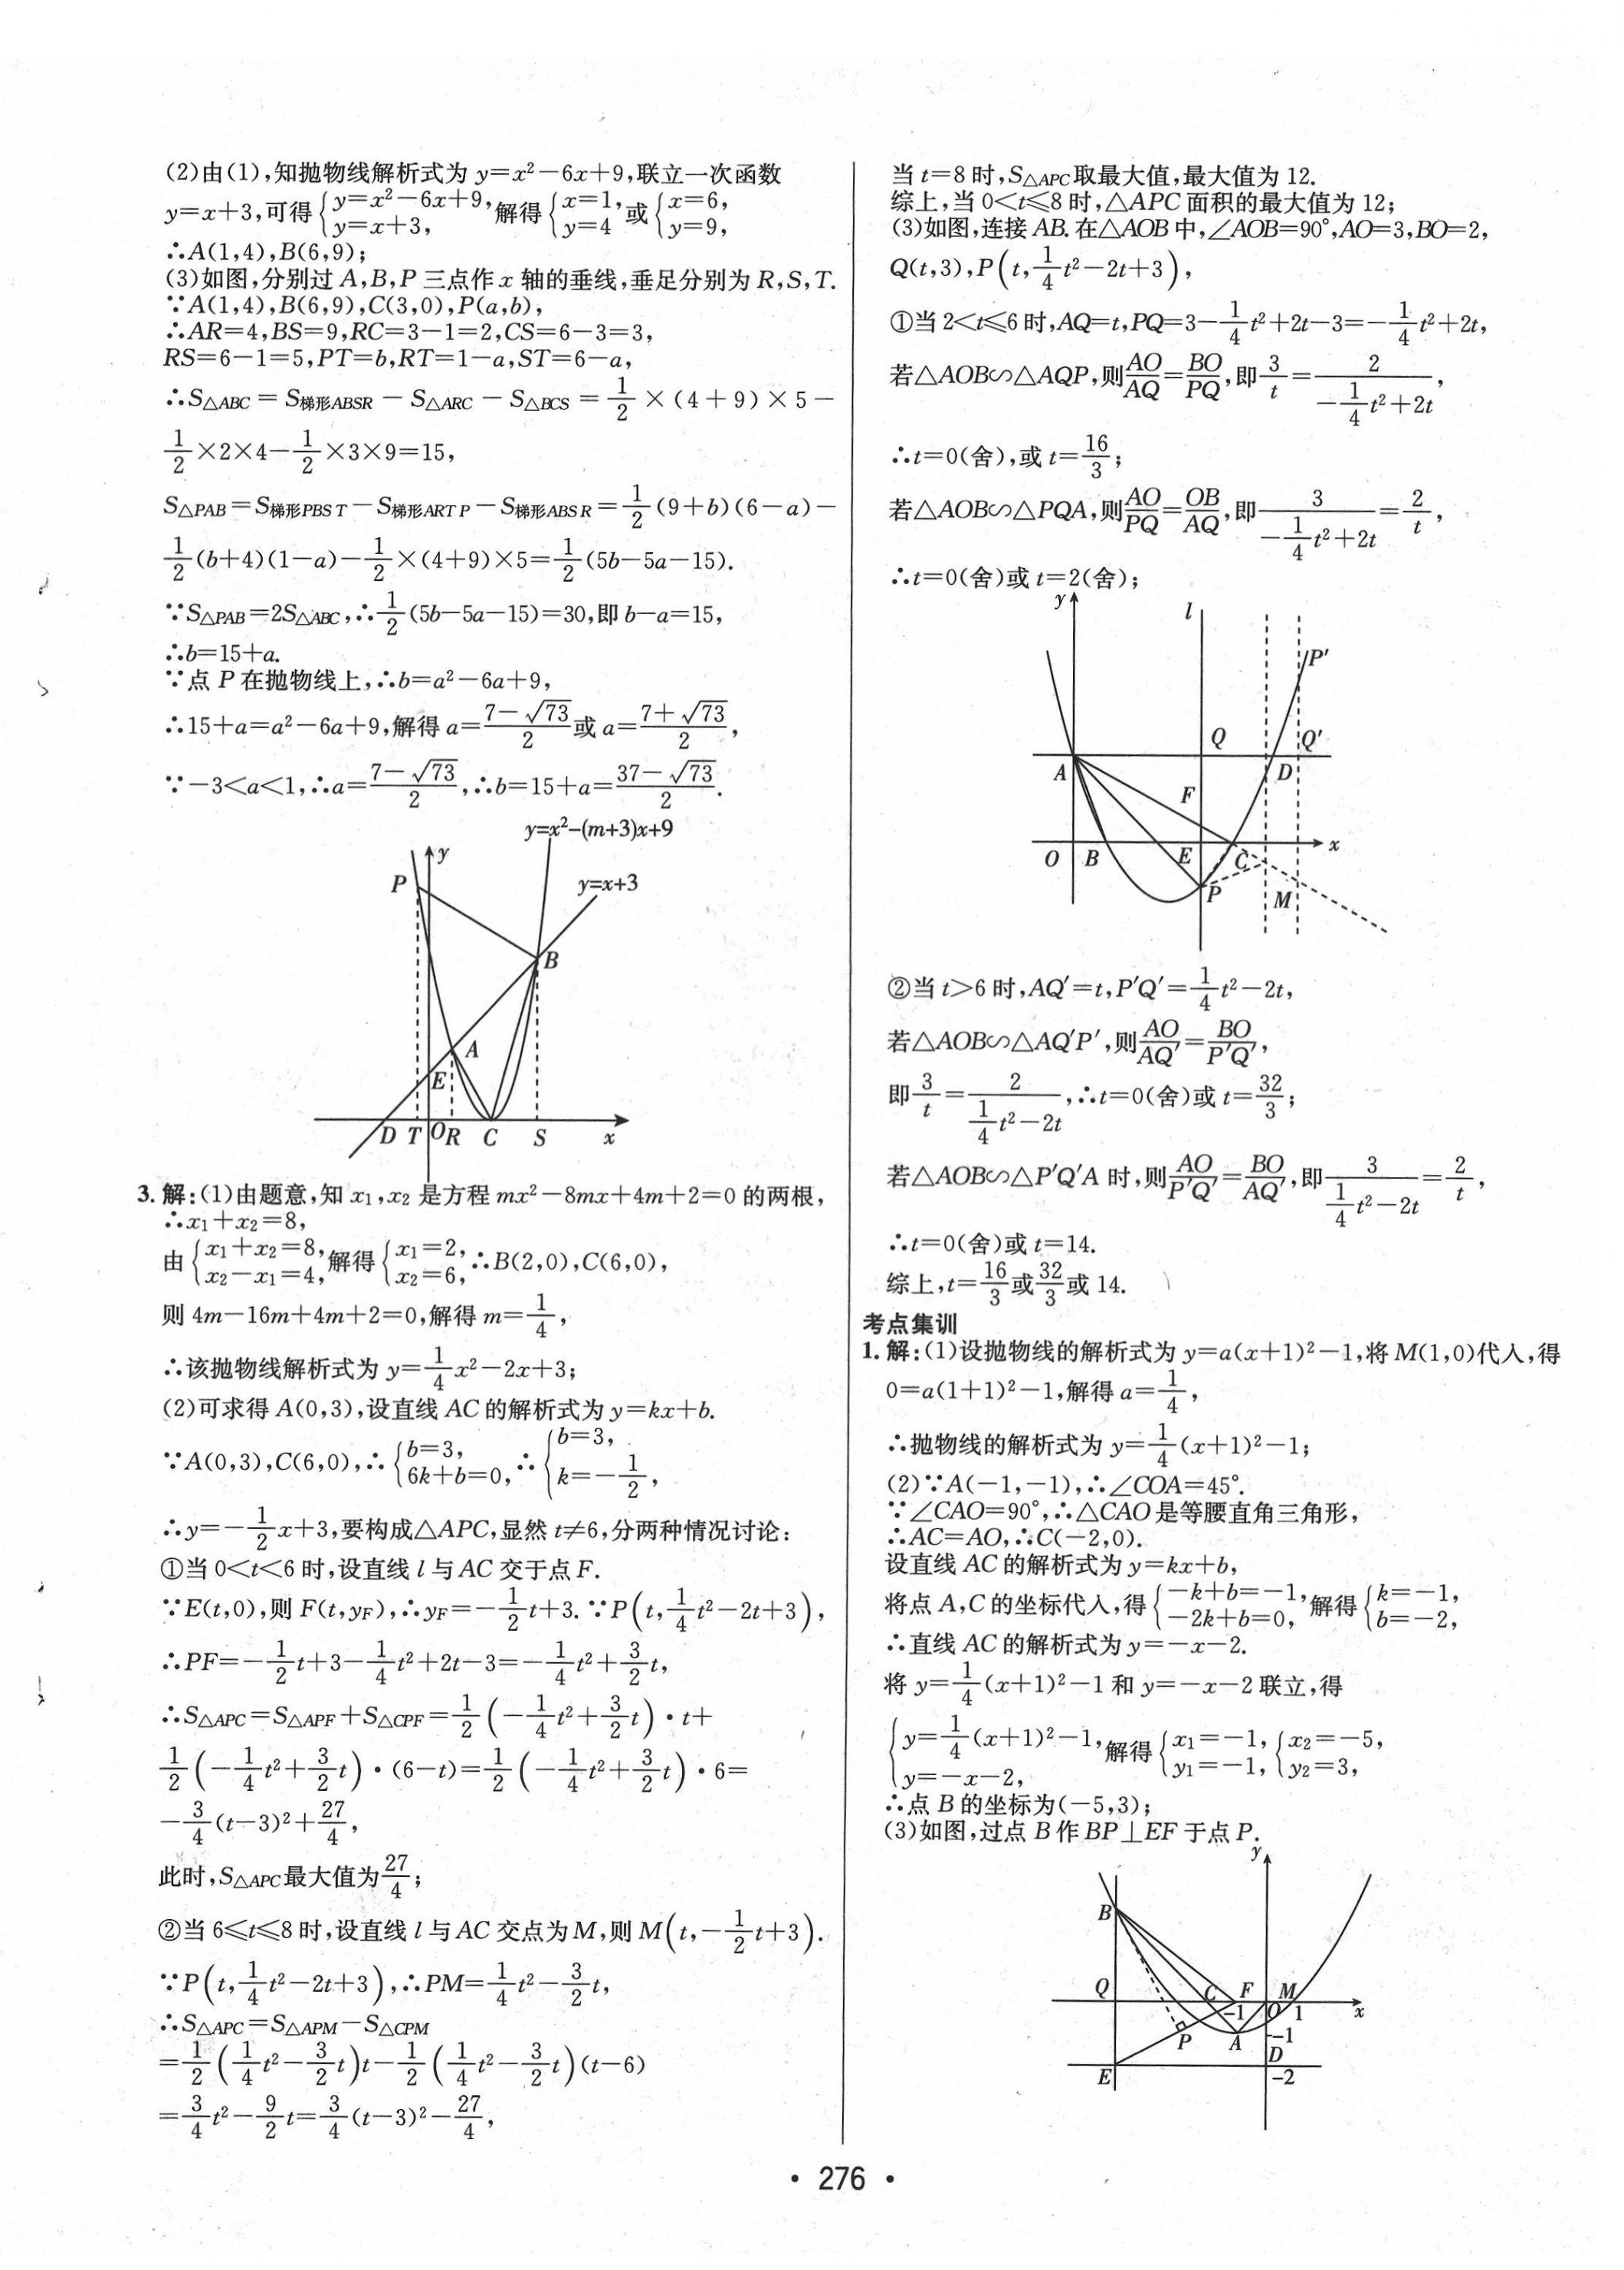 (2)由(1),知抛物线解析式为 y=x²-6x+9,联立一次函数
y=x+3,可得{y=x²-6x+9, y=x+3, 解得{x=1, y=4 或{x=6, y=9,
∴A(1,4),B(6,9);
(3)如图,分别过 A,B,P 三点作 x 轴的垂线,垂足分别为 R,S,T.
∵A(1,4),B(6,9),C(3,0),P(a,b),
∴AR=4,BS=9,RC=3-1=2,CS=6-3=3,
RS=6-1=5,PT=b,RT=1-a,ST=6-a,
∴S△ABC=S梯形ABSR-S△ARC-S△BCS=1/2×(4+9)×5-
1/2×2×4-1/2×3×9=15,
S△PAB=S梯形PBST-S梯形ARTP-S梯形ABSR=1/2(9+b)(6-a)-
1/2(b+4)(1-a)-1/2×(4+9)×5=1/2(5b-5a-15).
∵S△PAB=2S△ABC,∴1/2(5b-5a-15)=30,即 b-a=15,
∴b=15+a.
∵点 P 在抛物线上,∴b=a²-6a+9,
∴15+a=a²-6a+9,解得 a=(7-√73)/2 或 a=(7+√73)/2,
∵-3<a<1,∴a=(7-√73)/2,∴b=15+a=(37-√73)/2.
y=x²-(m+3)x+9
y
P
y=x+3
B
A
E
D T O R C S x
3. 解:(1)由题意,知 x₁,x₂ 是方程 mx²-8mx+4m+2=0 的两根,
∴x₁+x₂=8,
由{x₁+x₂=8, x₂-x₁=4, 解得{x₁=2, x₂=6, ∴B(2,0),C(6,0),
则 4m-16m+4m+2=0,解得 m=1/4,
∴该抛物线解析式为 y=1/4x²-2x+3;
(2)可求得 A(0,3),设直线 AC 的解析式为 y=kx+b.
∵A(0,3),C(6,0),∴{b=3, 6k+b=0, ∴{b=3, k=-1/2,
∴y=-1/2x+3,要构成△APC,显然 t≠6,分两种情况讨论:
①当 0<t<6 时,设直线 l 与 AC 交于点 F.
∵E(t,0),则 F(t,yF),∴yF=-1/2t+3.∵P(t,1/4t²-2t+3),
∴PF=-1/2t+3-1/4t²+2t-3=-1/4t²+3/2t,
∴S△APC=S△APF+S△CPF=1/2(-1/4t²+3/2t)·t+
1/2(-1/4t²+3/2t)·(6-t)=1/2(-1/4t²+3/2t)·6=
-3/4(t-3)²+27/4,
此时,S△APC最大值为27/4;
②当 6≤t≤8 时,设直线 l 与 AC 交点为 M,则 M(t,-1/2t+3).
∵P(t,1/4t²-2t+3),∴PM=1/4t²-3/2t,
∴S△APC=S△APM-S△CPM
=1/2(1/4t²-3/2t)t-1/2(1/4t²-3/2t)(t-6)
=3/4t²-9/2t=3/4(t-3)²-27/4,
当 t=8 时,S△APC取最大值,最大值为 12.
综上,当 0<t≤8 时,△APC 面积的最大值为 12;
(3)如图,连接 AB.在△AOB 中,∠AOB=90°,AO=3,BO=2,
Q(t,3),P(t,1/4t²-2t+3),
①当 2<t≤6 时,AQ=t,PQ=3-1/4t²+2t-3=-1/4t²+2t,
若△AOB∽△AQP,则AO/AQ=BO/PQ,即3/t=2/(-1/4t²+2t),
∴t=0(舍),或 t=16/3;
若△AOB∽△PQA,则AO/PQ=OB/AQ,即3/(-1/4t²+2t)=2/t,
∴t=0(舍)或 t=2(舍);
y l
P′
Q Q′
A D
F
O B E C x
P M
②当 t>6 时,AQ′=t,P′Q′=1/4t²-2t,
若△AOB∽△AQ′P′,则AO/AQ′=BO/P′Q′,
即3/t=2/(1/4t²-2t),∴t=0(舍)或 t=32/3;
若△AOB∽△P′Q′A 时,则AO/P′Q′=BO/AQ′,即3/(1/4t²-2t)=2/t,
∴t=0(舍)或 t=14.
综上,t=16/3或32/3或 14.
考点集训
1. 解:(1)设抛物线的解析式为 y=a(x+1)²-1,将 M(1,0)代入,得
0=a(1+1)²-1,解得 a=1/4,
∴抛物线的解析式为 y=1/4(x+1)²-1;
(2)∵A(-1,-1),∴∠COA=45°.
∵∠CAO=90°,∴△CAO 是等腰直角三角形,
∴AC=AO,∴C(-2,0).
设直线 AC 的解析式为 y=kx+b,
将点 A,C 的坐标代入,得{-k+b=-1, -2k+b=0, 解得{k=-1, b=-2,
∴直线 AC 的解析式为 y=-x-2.
将 y=1/4(x+1)²-1 和 y=-x-2 联立,得
{y=1/4(x+1)²-1, y=-x-2, 解得{x₁=-1, y₁=-1, {x₂=-5, y₂=3,
∴点 B 的坐标为(-5,3);
(3)如图,过点 B 作 BP⊥EF 于点 P.
y
B
Q C F M
-1 O 1 x
P A -1
D
E -2
· 276 ·